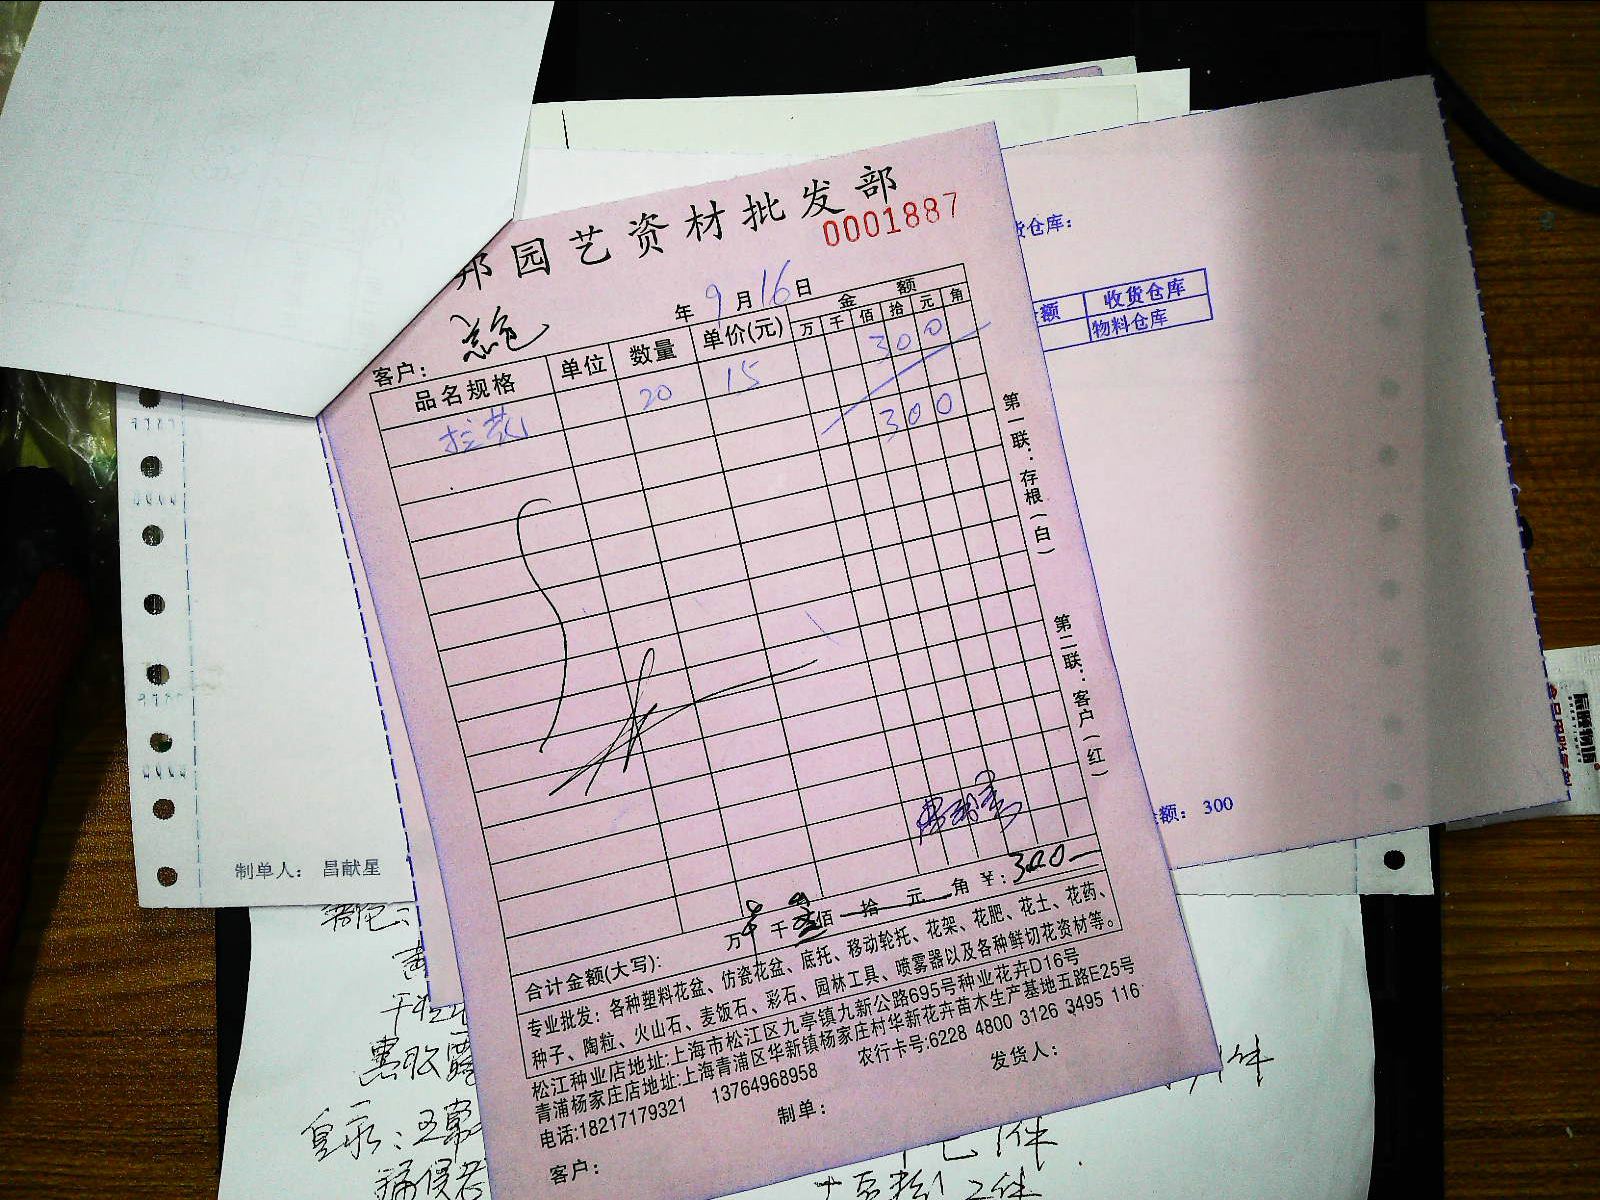 邦园艺资材批发部
0001887
年 9 月 16 日
客户：
品名规格 单位 数量 单价(元) 金额
万 千 佰 拾 元 角
20 15 300
300
第一联：存根(白)
第二联：客户(红)
合计金额(大写)： 万 千 佰 拾 元 角 ¥：300—
专业批发：各种塑料花盆、仿瓷花盆、底托、移动轮托、花架、花肥、花土、花药、
种子、陶粒、火山石、麦饭石、彩石、园林工具、喷雾器以及各种鲜切花资材等。
松江种业店地址:上海市松江区九亭镇九新公路695号种业花卉D16号
青浦杨家庄店地址:上海青浦区华新镇杨家庄村华新花卉苗木生产基地五路E25号
电话:18217179321 13764968958 农行卡号:6228 4800 3126 3495 116
客户： 制单： 发货人：
货仓库：
额 收货仓库
物料仓库
额： 300
制单人： 昌献星
1件
1件
2件